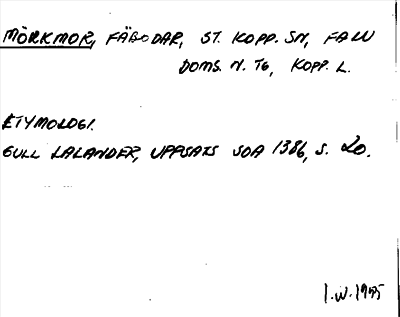 MÖRKMOR, FÄBODAR, ST. KOPP. SN, FALU
DOMS. N. TG, KOPP. L.
ETYMOLOGI.
GULL LALANDER, UPPSATS SOA 1386, S. 20.
I.W. 1975